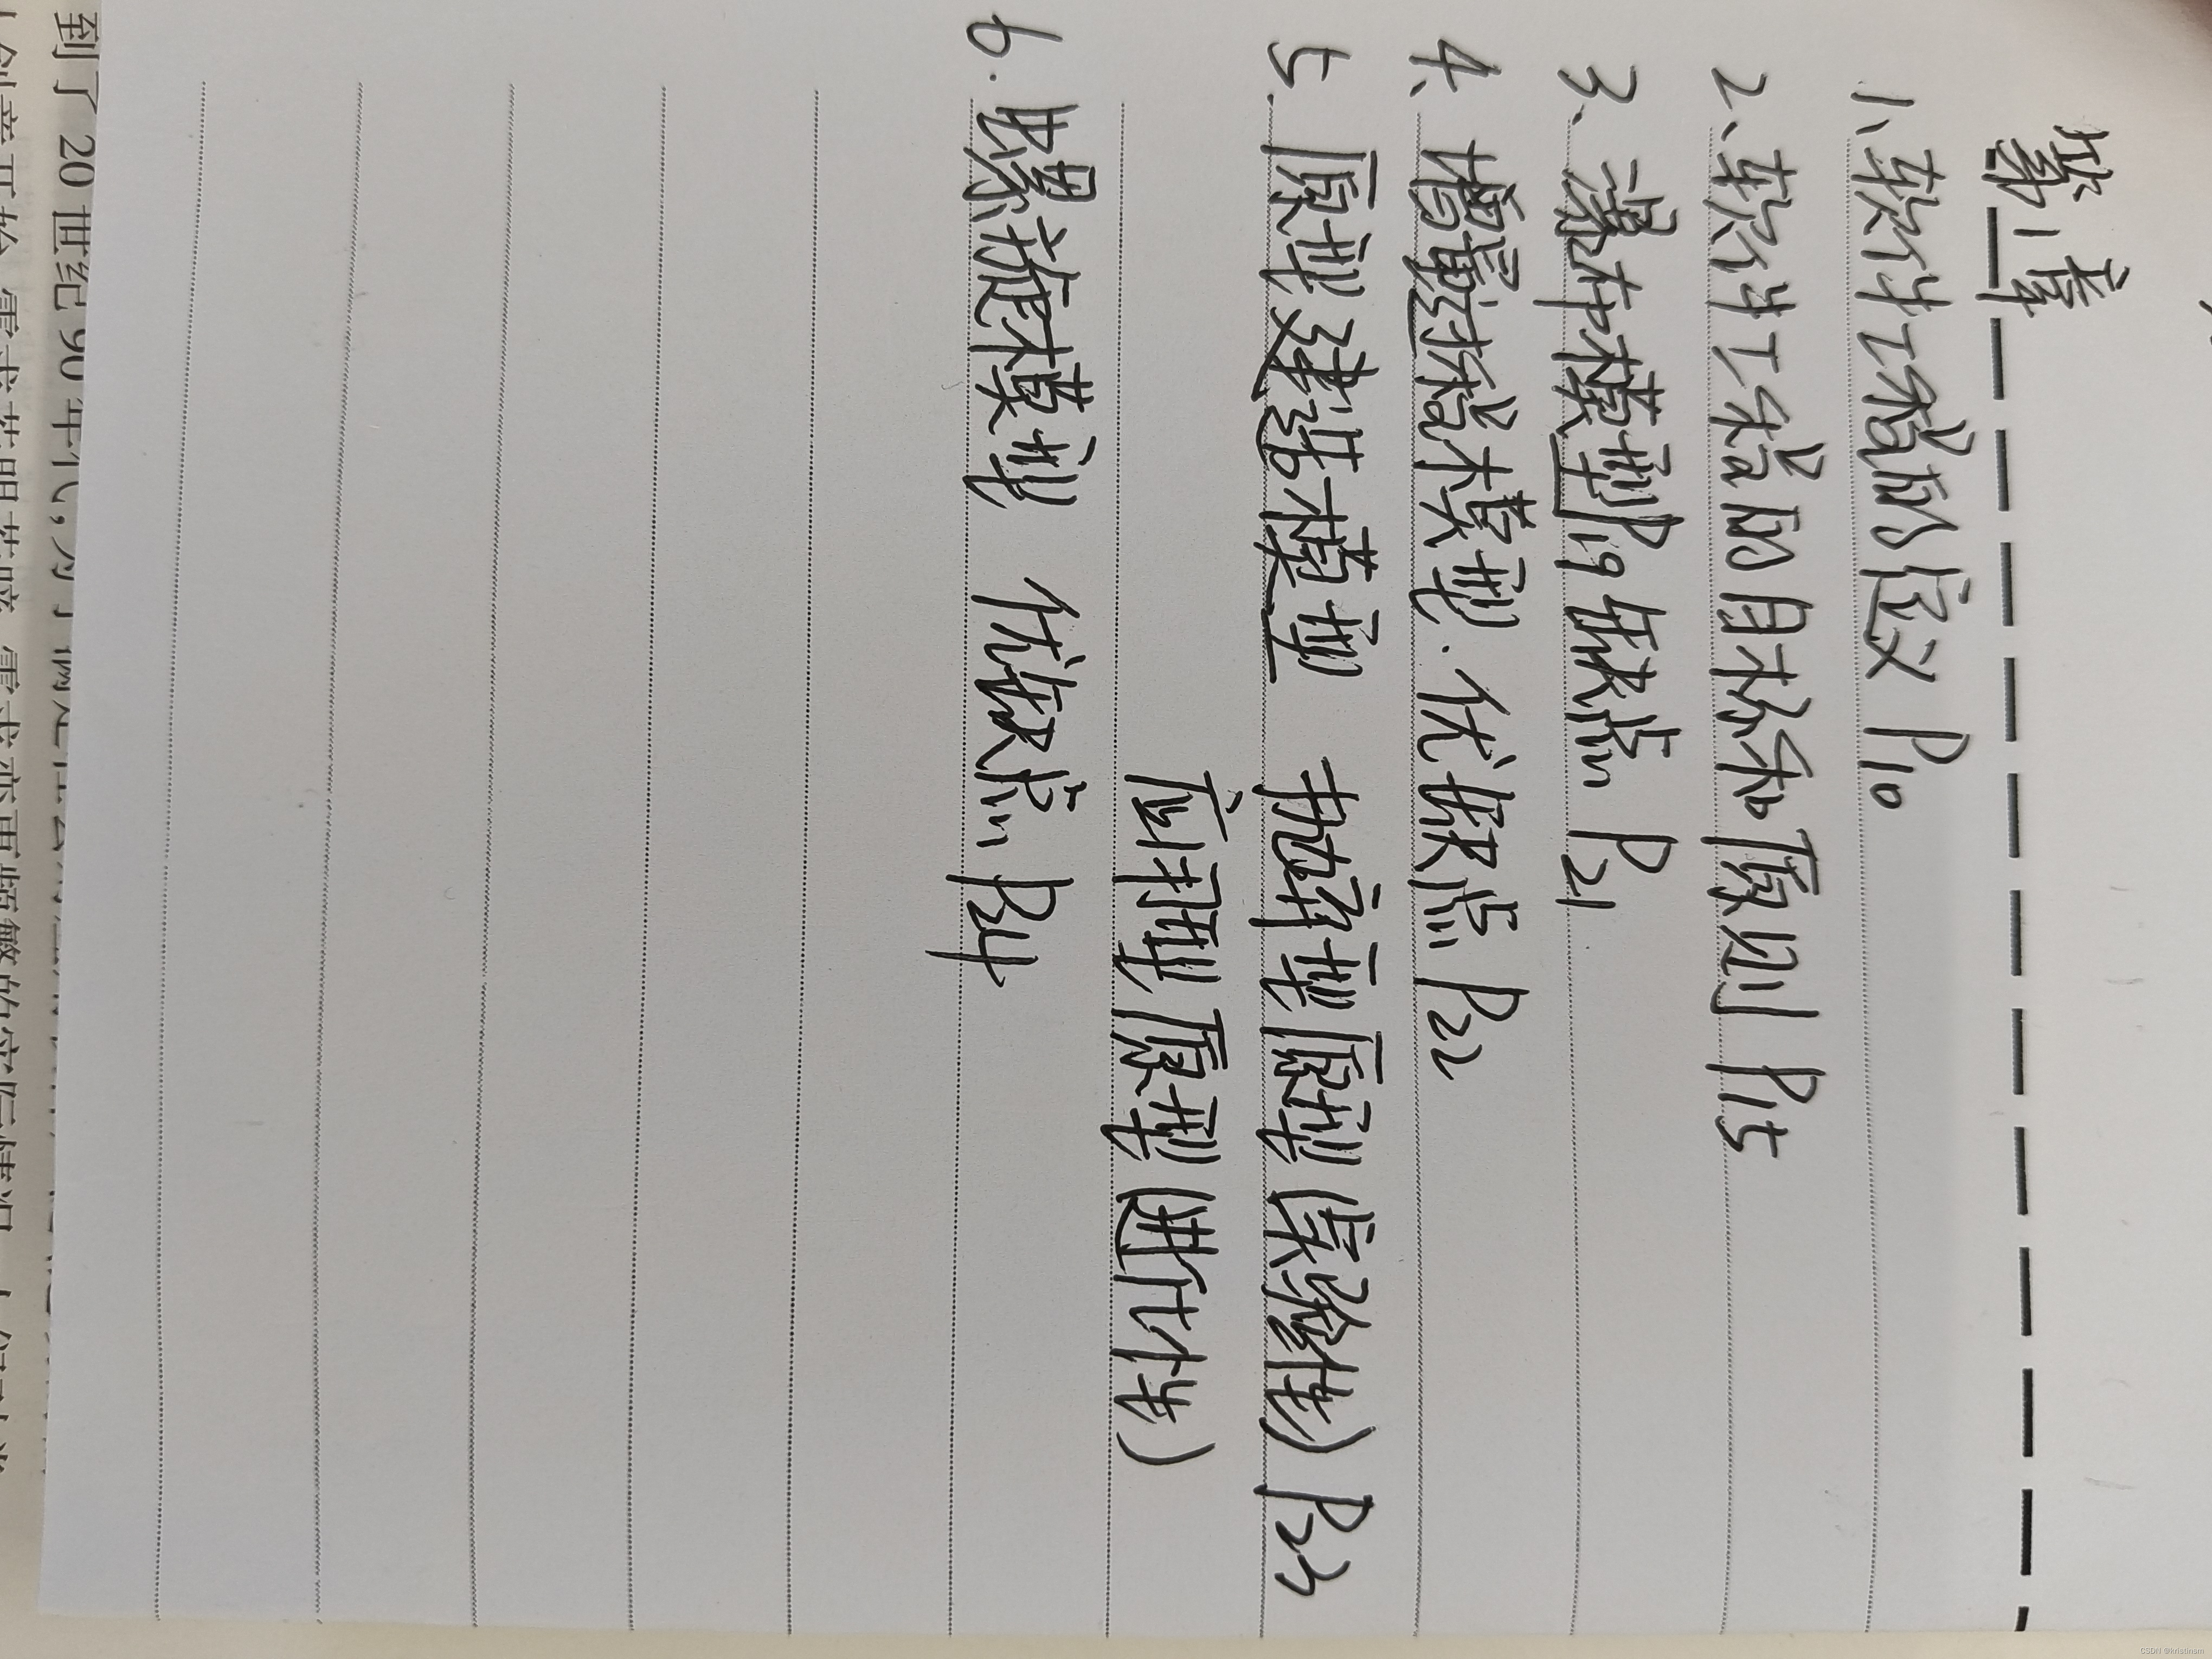 第1章
1、软件工程的定义 P10
2、软件工程的目标和原则 P15
3、瀑布模型P19 缺点 P21
4、增量过程模型. 优缺点 P22
5. 原型建造模型 抛弃型原型(实验性) P23
应用型原型(进化性)
6. 螺旋模型 优缺点 P24
到了 20 世纪 90 年代,为了
CSDN @kristinam